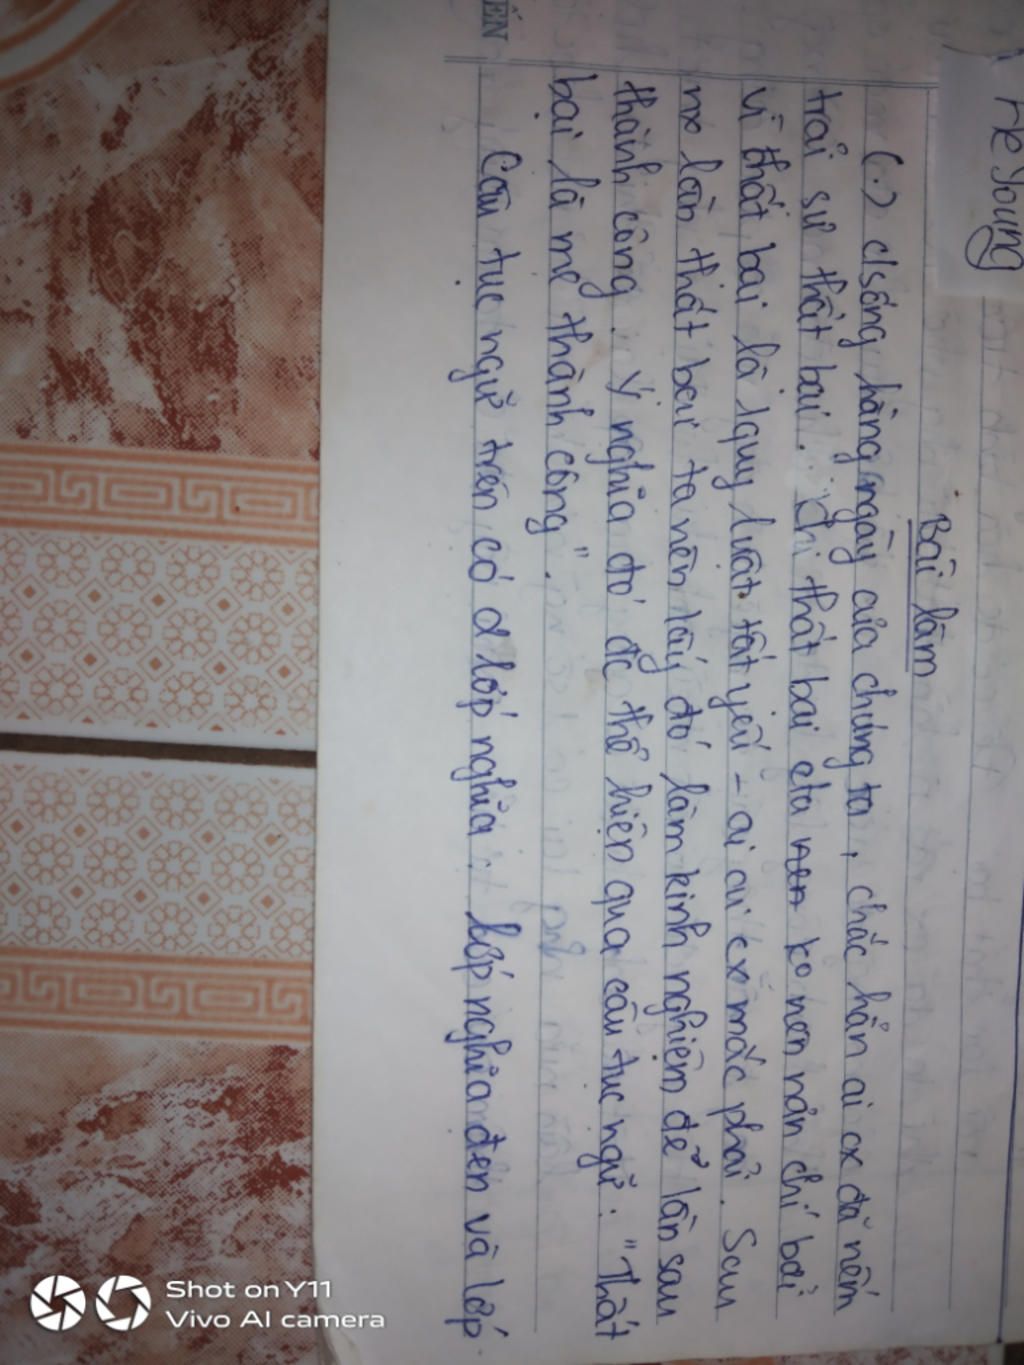 He Young
Bài làm
(.) c/sống hằng ngày của chúng ta, chắc hẳn ai cx đã nếm
trải sự thất bại. Khi thất bại cta nen ko nen nản chí bởi
vì thất bại là 1 quy luật tất yếu - ai cũ cx mắc phải. Sau
mx lần thất bại ta nên lấy đó làm kinh nghiệm để lần sau
thành công. Ý nghĩa đó đc thể hiện qua câu tục ngữ: "Thất
bại là mẹ thành công".
Câu tục ngữ trên có 2 lớp nghĩa: lớp nghĩa đen và lớp
ẾN
Shot on Y11
Vivo AI camera